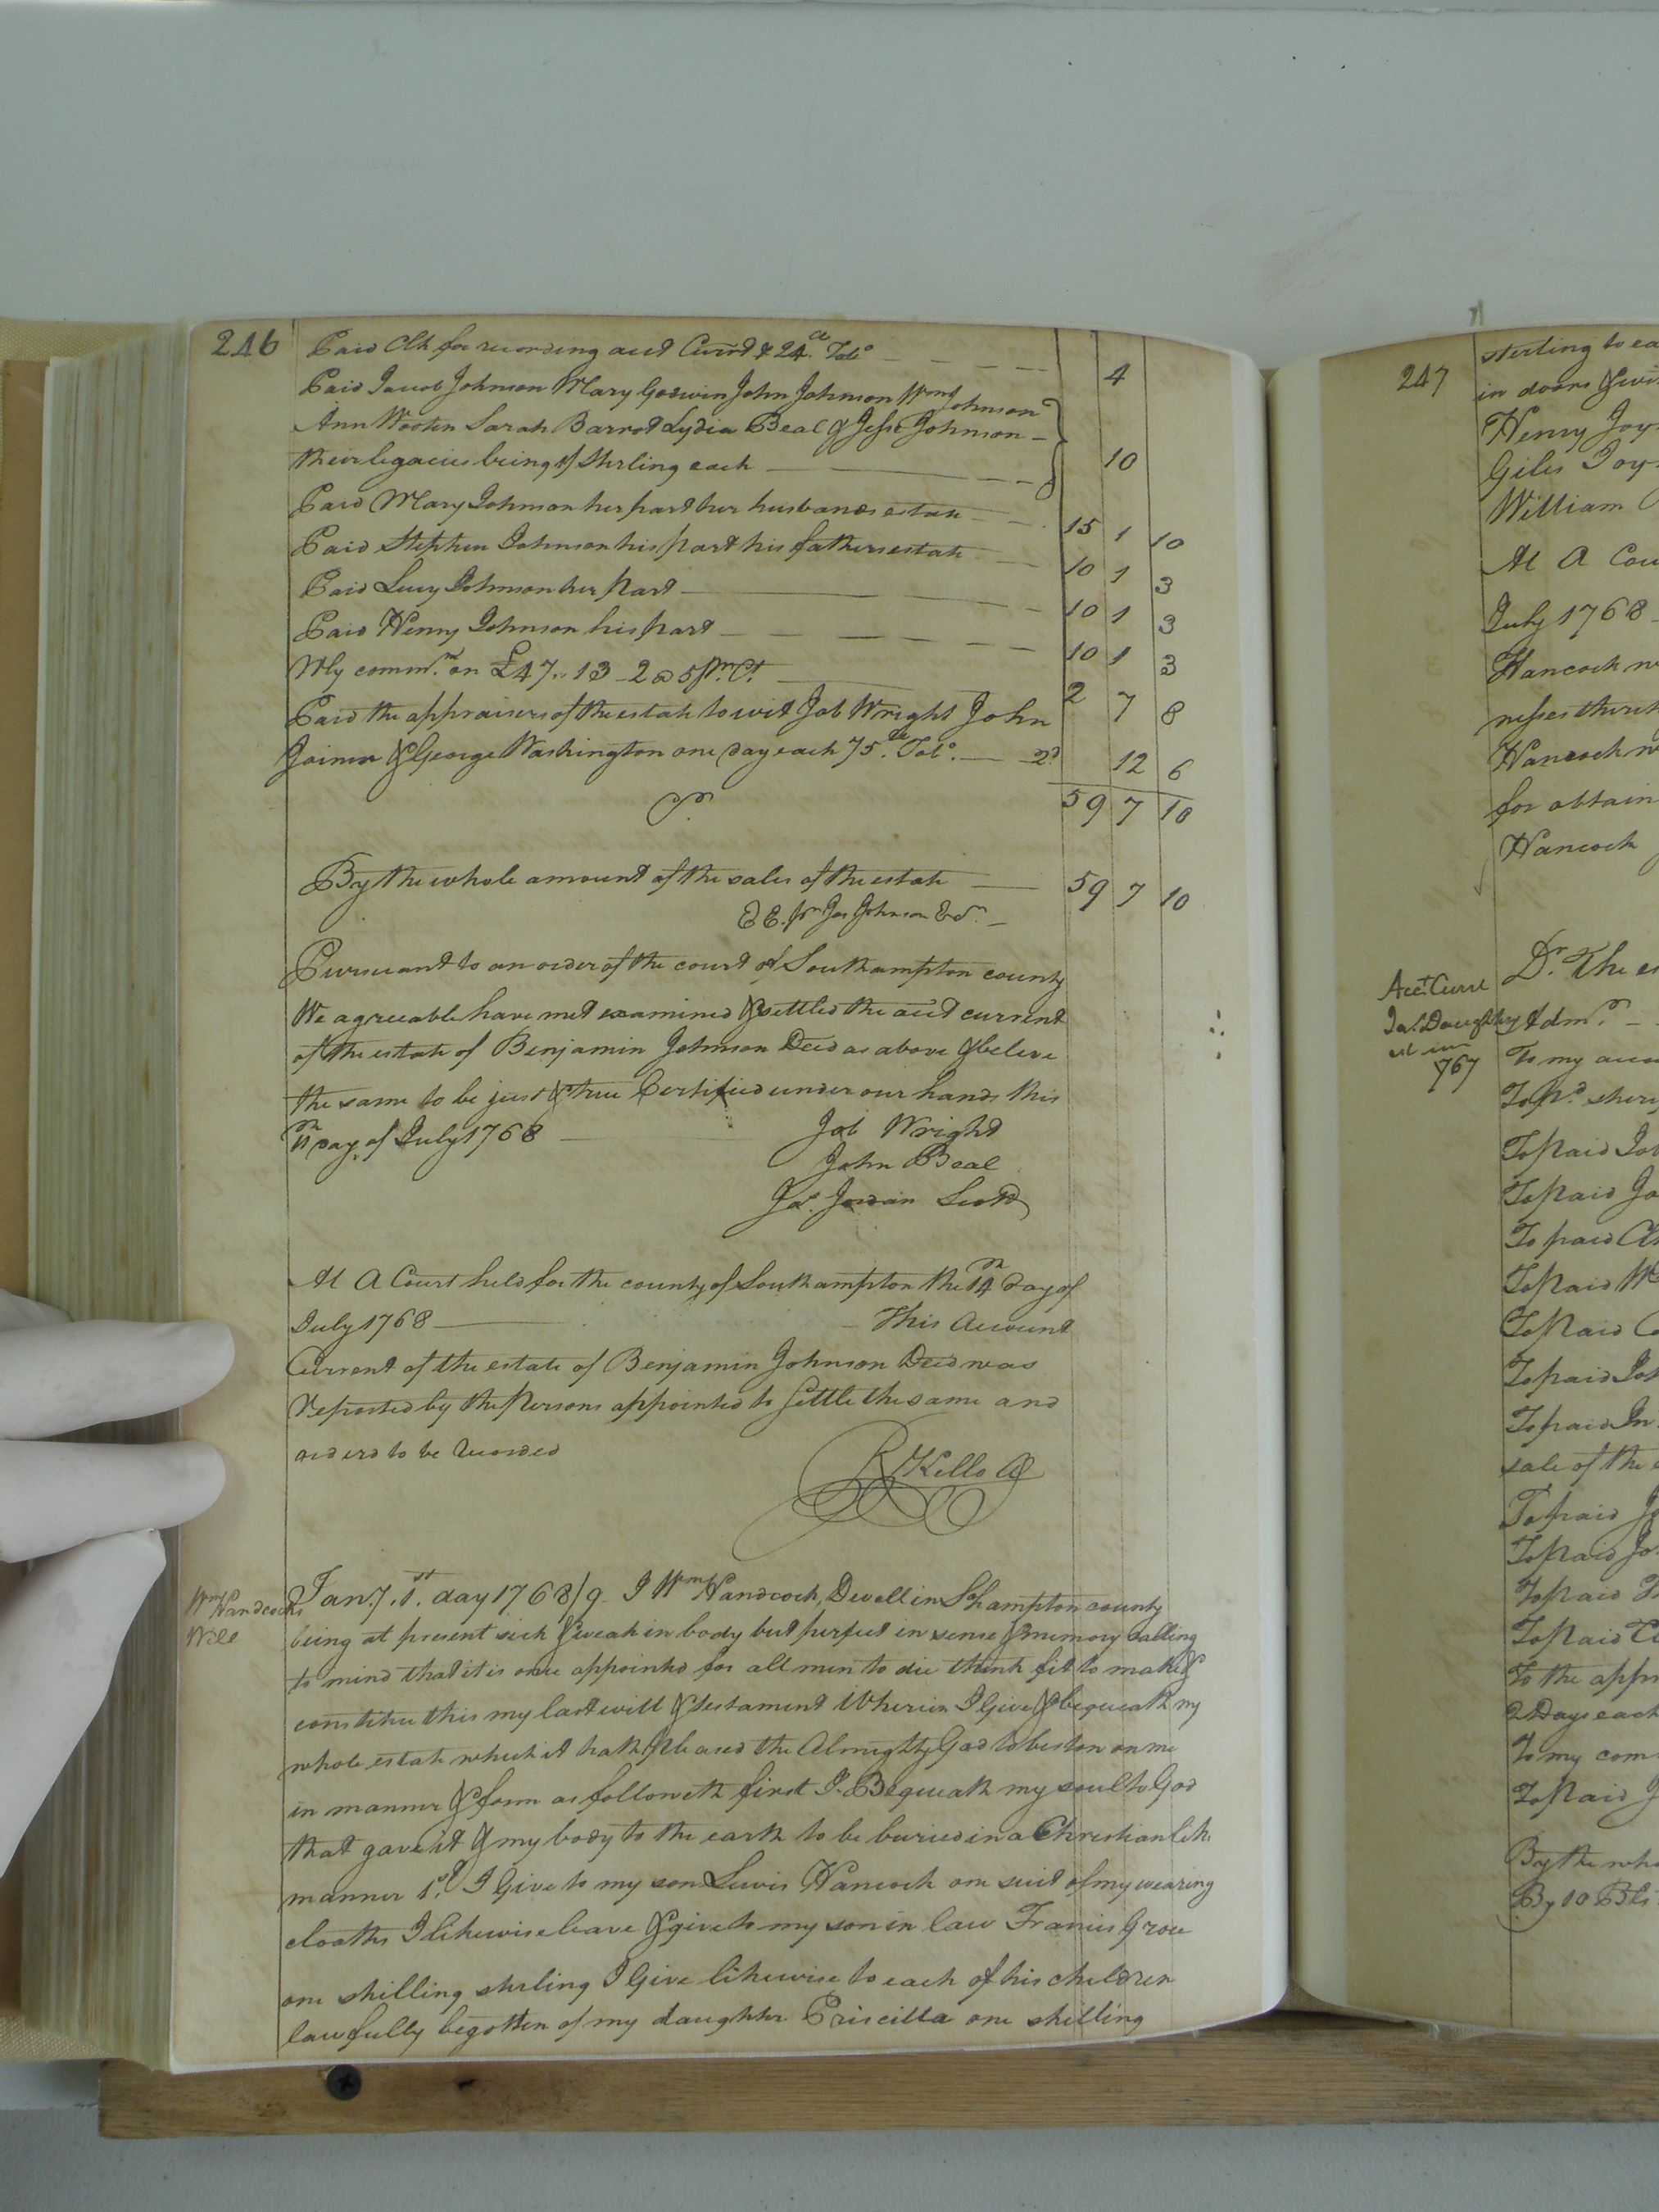 246
Paid Clk for recording acct Currt & 24 lb Tobo 4
Paid Jacob Johnson Mary Godwin John Johnson Wm Johnson
Ann Wooten Sarah Barrot Lydia Beal & Jesse Johnson
their legacies being 1/ Sterling each 10
Paid Mary Johnson her part her husbands estate 15 1 10
Paid Stephen Johnson his part his fathers estate 10 1 3
Paid Lucy Johnson her part 10 1 3
Paid Henry Johnson his part 10 1 3
My commn. on £47..13_2 @ 5 Pr. Ct. 2 7 8
Paid the appraisers of the estate to wit Job Wright John
Joiner & George Washington one day each 75 lb Tobo. 2d 12 6
59 7 10
Cr.
By the whole amount of the sales of the estate 59 7 10
E E. Pr Jas Johnson Exr.
Pursuant to an order of the court of Southampton county
We agreeable have met examined & settled the acct current
of the estate of Benjamin Johnson Decd as above & beleve
the same to be just & true Certified under our hands this
11th day of July 1768
Job Wright
John Beal
Js. Jordan Scott
At A Court held for the county of Southampton the 14th day of
July 1768 This Account
Current of the estate of Benjamin Johnson Decd was
reported by the Persons appointed to settle the same and
orderd to be recorded
R Kello Cl
Wm Handcocks
Will
Jany. 1st. day 1768/9 I Wm Handcock, Dwell in Shampton county
being at present sick & weak in body but perfect in sense & memory Calling
to mind that it is once appointed for all men to die think fit to make &
constitue this my last will & testament Wherein I Give & bequeath my
whole estate which it hath pleased the Almighty God to bestow on me
in manner & form as followeth first I Bequeath my soul to God
that gave it & my body to the earth to be buried in a Christian like
manner 1st I Give to my son Lewis Hancock one suit of my wearing
cloaths I likewise leave & give to my son in law Francis Grove
one shilling sterling I Give likewise to each of his children
lawfully begotten of my daughter Priscilla one shilling
247
sterling to ea
in doors &
Henry Joy
Giles Joy
William
At A Cou
July 1768
Hancock w
nesses there
Hancock w
for obtain
Hancock
Acct Curr
Dr. The es
Adm.
767
To my acco
To Pd. sher
To Paid Jo
To Paid Jo
To paid
To Paid W
To Paid
To paid Jo
To paid In
sale of the
To paid Jo
To Paid Jo
To Paid
To Paid
To the appr
2 Days each
To my com
To Paid J
By the who
By 10 Bls